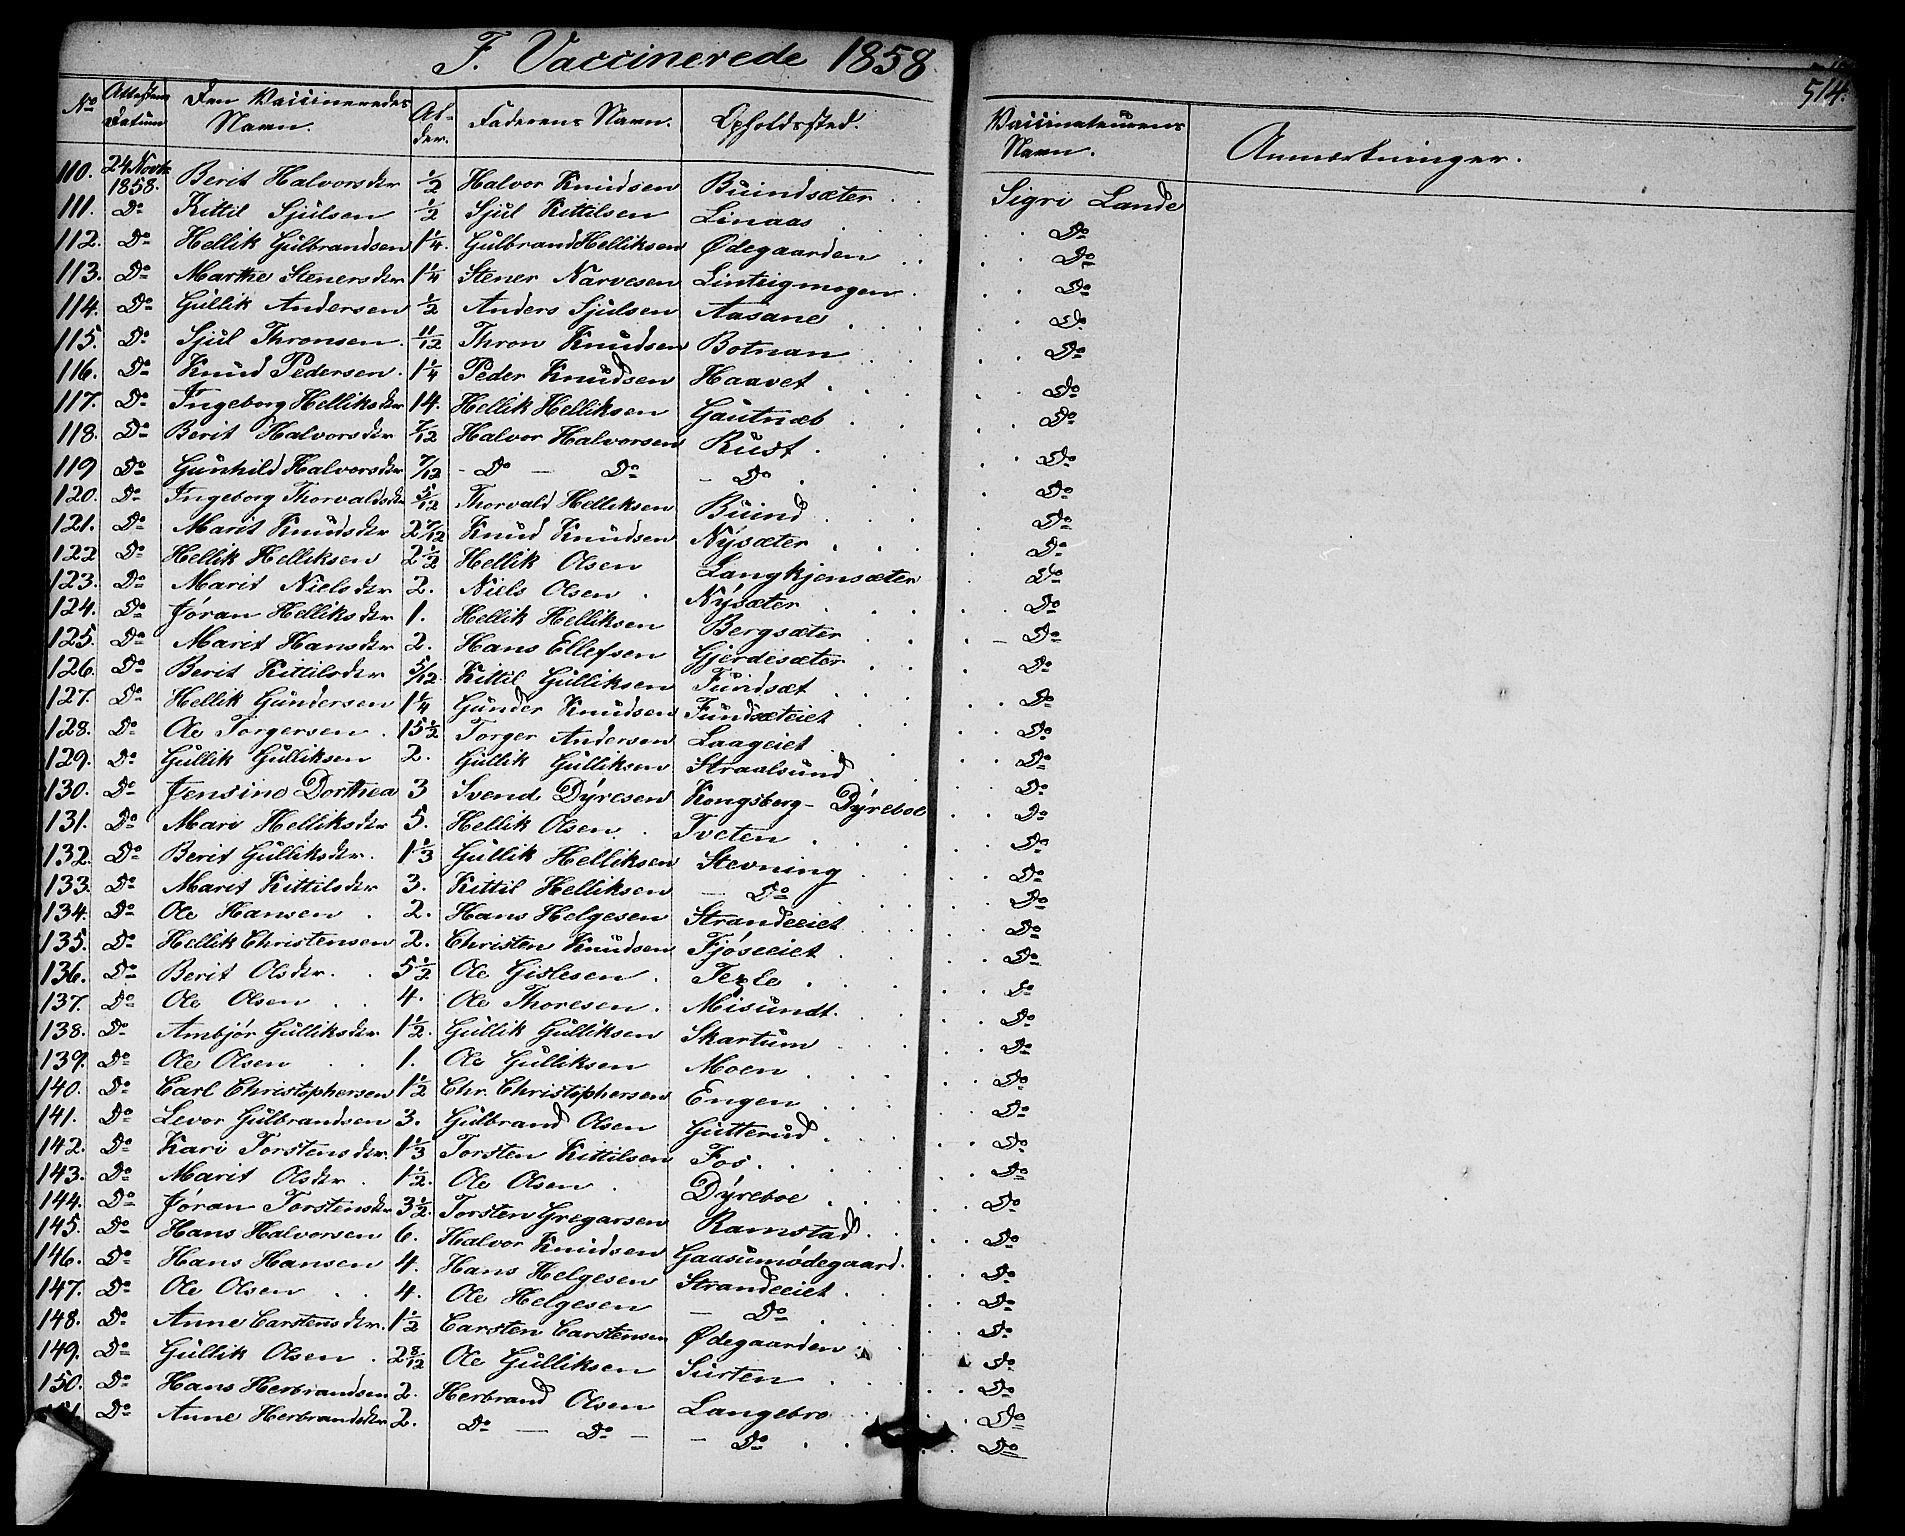 F. Vaccinerede 1858
514.
No Attestens Datum Den Vaccineredes Navn. Al-der. Faderens Navn. Opholdssted. Vaccinateurens Navn. Anmærkninger.
110. 24 Novbr 1858. Berit Halvorsdtr 1/2 Halvor Knudsen Buindsæter . . Sigri Lande
111. Do Kittil Sjulsen 1/2 Sjul Kittilsen Linaas . . Do
112. Do Hellik Gulbrandsen 1 1/4. Gulbrand Helliksen Ødegaarden . . Do
113. Do Marthe Stenersdtr 1 1/4 Stener Narvesen Linteigmogen . Do
114. Do Gullik Andersen 1/2 Anders Sjulsen Aasane . Do
115. Do Sjul Thronsen. 11/12 Thron Knudsen Botnan . . Do
116. Do Knud Pedersen. 1 1/4 Peder Knudsen Haavet . . Do
117. Do Ingeborg Helliksdtr 14. Hellik Helliksen Gautnæb . . Do
118. Do Berit Halvorsdtr 7/12 Halvor Halvorsen Rust . . Do
119 Do Gunhild Halvorsdtr 7/12 - Do — Do - Do . Do
120. Do Ingeborg Thorvaldsdtr 5/12 Thorvald Helliksen Buind . . Do
121. Do Marit Knudsdtr 2 7/12 Knud Knudsen Nysæter . . Do
122 Do Hellik Helliksen 2 1/2 Hellik Olsen Langkjensæter Do
123. Do Marit Nielsdtr 2. Niels Olsen . Nysæter . . Do
124. Do Jøran Helliksdtr 1. Hellik Helliksen Bergsæter . . Do
125. Do Marit Hansdtr 2. Hans Ellefsen Gjerdesæter . . Do
126. Do Berit Kittilsdtr 5/12. Kittil Gulliksen Fundsæt . . Do
127. Do Hellik Gundersen 1 1/4 Gunder Knudsen Fundsæteiet . . Do
128. Do Ole Torgersen . 15 1/2 Torger Andersen Laageiet . . Do
129. Do Gullik Gulliksen 2. Gullik Gulliksen Straalsund . . Do
130. Do Jensine Dorthea 3 Svend Dyresen Kongsberg- Dyreboe . . Do
131. Do Mari Helliksdtr 5. Hellik Olsen . Tveten . . Do
132. Do Berit Gulliksdtr. 1 1/3 Gullik Helliksen Stevning . . Do
133. Do Marit Kittilsdtr 3. Kittil Helliksen — Do . . Do
134. Do Ole Hansen . 2. Hans Helgesen Strandeeiet . . Do
135. Do Hellik Christensen 2. Christen Knudsen Fjøseeiet . . Do
136. Do Berit Olsdtr. . 5 1/2 Ole Gislesen . . . Do
137. Do Ole Olsen . . 4. Ole Thoresen. Misundt. . . Do
138. Do Ambjør Gulliksdtr 1 1/2. Gullik Gulliksen Skartum . . Do
139. Do Ole Olsen . . 1. Ole Gulliksen Moen . . Do
140. Do Carl Christophersen 1 1/2 Chr. Christophersen Engen . . Do
141. Do Levor Gulbrandsen 3. Gulbrand Olsen Gutterud . . Do
142. Do Kari Torstensdtr. 1 1/3 Torsten Kittilsen Fos . . Do
143. Do Marit Olsdtr . 1 1/2. Ole Olsen . Dyreboe . . Do
144. Do Jøran Torstensdtr 3 1/2. Torsten Gregarsen Ramstad . . Do
145. Do Hans Halvorsen 6. Halvor Knudsen Gaasumødegaard. . . Do
146. Do Hans Hansen 4. Hans Helgesen Strandeeiet . . Do
147. Do Ole Olsen . . 4. Ole Helgesen — Do . . Do
148. Do Anne Carstensdtr. 1 1/2 Carsten Carstensen Ødegaarden . . Do
149. Do Gullik Olsen . 2 8/12 Ole Gulliksen Surten . . Do
150. Do Hans Herbrandsen 2. Herbrand Olsen Langebro . . Do
Do Anne Herbrandsdtr 2. Do — Do — - Do . . Do
Do